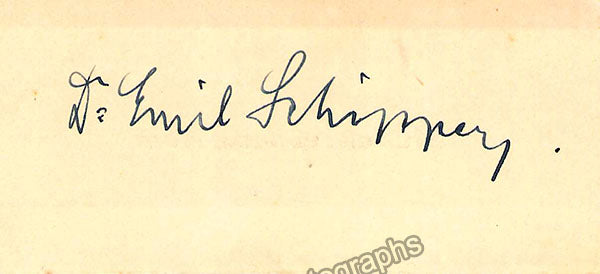 Dr. Emil Schipper.
tographs